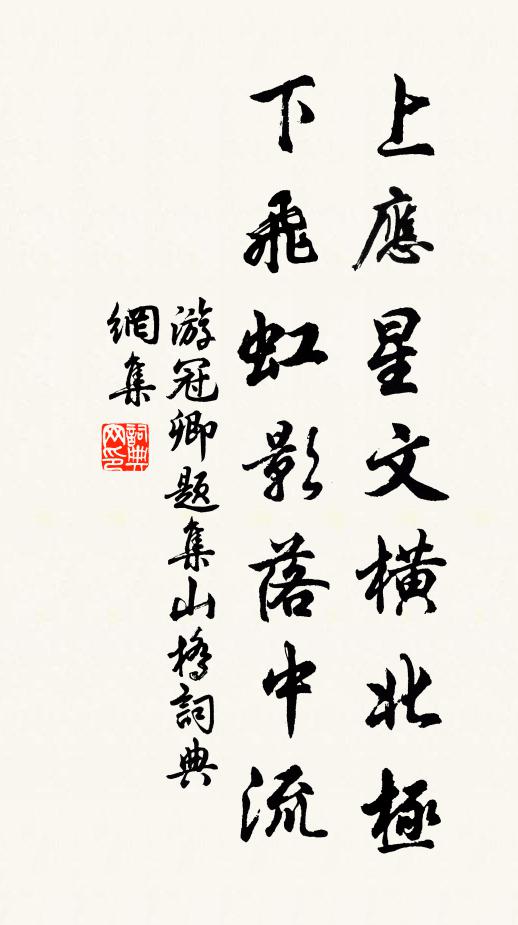 上應星文橫北極
下飛虹影落中流
游冠卿題集山橋詞典
網集
詞典
网印